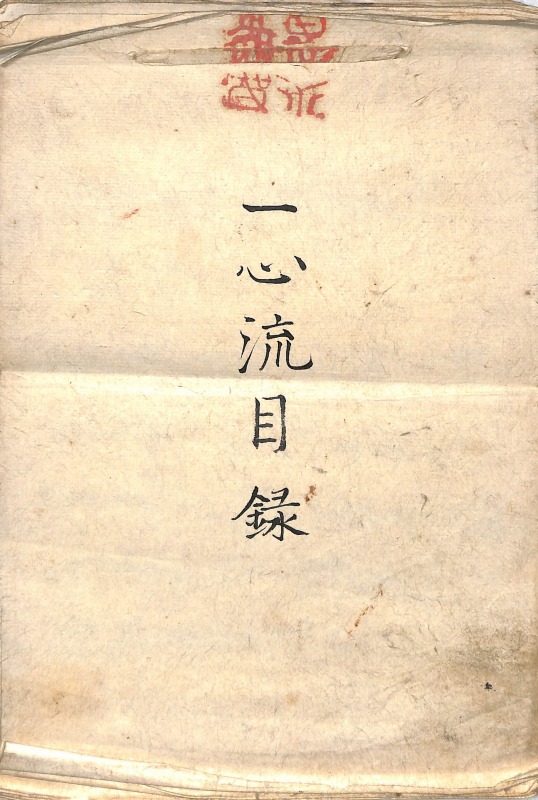 一心流目録